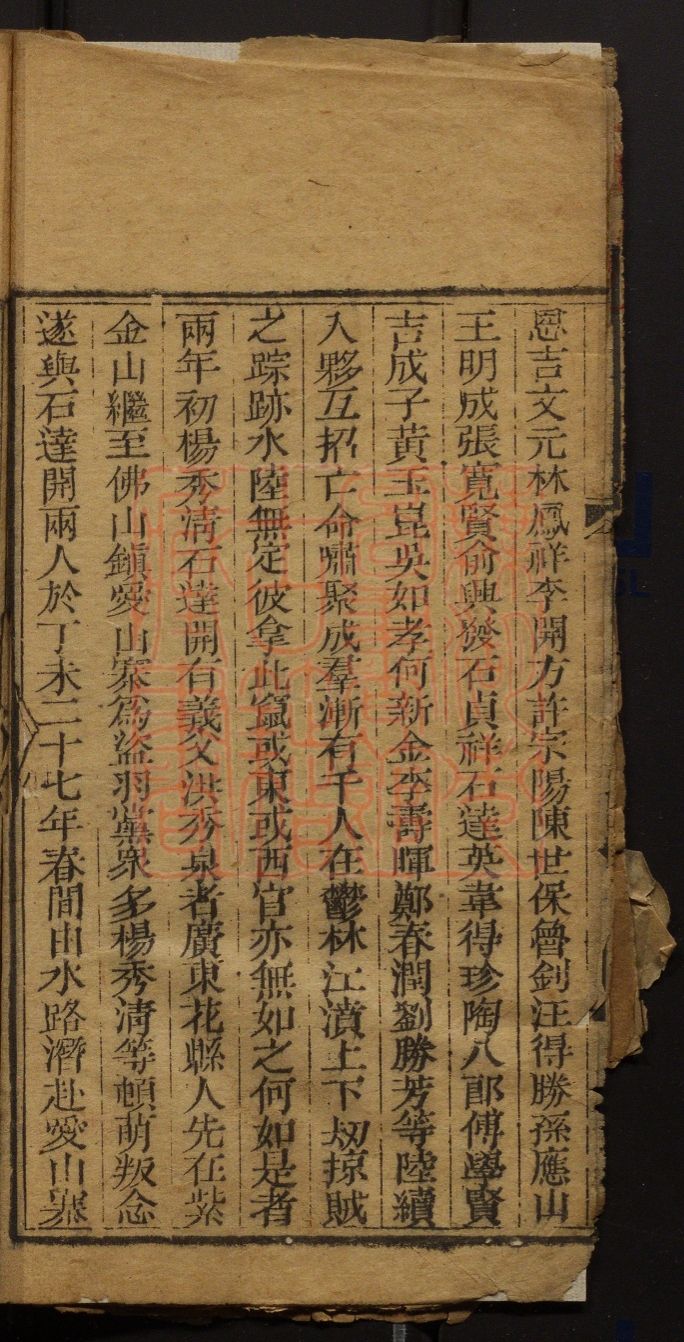 恩吉文元林鳳祥李開方許宗陽陳世保曾釗汪得勝孫應山
王明成張寬賢俞興發石貞祥石達英韋得珍陶八郎傅學賢
吉成子黃玉崑吳如孝何新金李壽暉鄭春潤劉勝芳等陸續
入夥互招亡命嘯聚成羣漸有千人在鬱林江濆上下刼掠賊
之踪跡水陸無定彼拿此竄或東或西官亦無如之何如是者
兩年初楊秀清石達開有義父洪秀泉者廣東花縣人先在紫
金山繼至佛山鎮愛山寨為盜羽黨衆多楊秀清等頓萌叛念
遂與石達開兩人於丁未二十七年春間由水路潛赴愛山寨